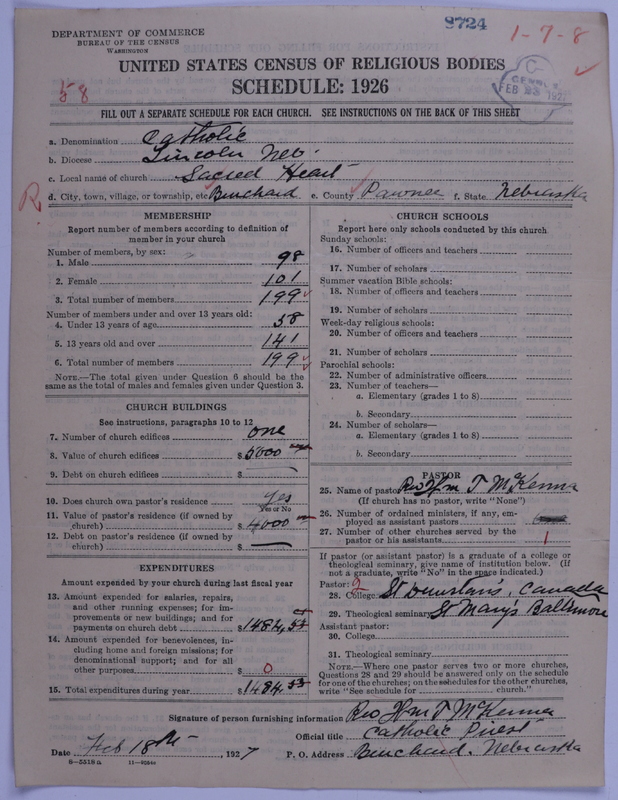 9724
1-7-8
DEPARTMENT OF COMMERCE
BUREAU OF THE CENSUS
WASHINGTON
C
CENSUS
FEB 23 192
UNITED STATES CENSUS OF RELIGIOUS BODIES
58
SCHEDULE: 1926
FILL OUT A SEPARATE SCHEDULE FOR EACH CHURCH. SEE INSTRUCTIONS ON THE BACK OF THIS SHEET
a. Denomination Catholic
b. Diocese Lincoln Neb.
c. Local name of church Sacred Heart
R
d. City, town, village, or township, etc. Burchard e. County Pawnee f. State Nebraska
MEMBERSHIP
Report number of members according to definition of
member in your church
Number of members, by sex:
1. Male 98
2. Female 101
3. Total number of members 199
Number of members under and over 13 years old:
4. Under 13 years of age 58
5. 13 years old and over 141
6. Total number of members 199
NOTE.—The total given under Question 6 should be the
same as the total of males and females given under Question 3.
CHURCH BUILDINGS
See instructions, paragraphs 10 to 12
7. Number of church edifices one
8. Value of church edifices $5000
9. Debt on church edifices $
10. Does church own pastor's residence Yes
Yes or No
11. Value of pastor's residence (if owned by
church) $4000
12. Debt on pastor's residence (if owned by
church) $
EXPENDITURES
Amount expended by your church during last fiscal year
13. Amount expended for salaries, repairs,
and other running expenses; for im-
provements on new buildings; and for
payments on church debt $1484,55
14. Amount expended for benevolences, in-
cluding home and foreign missions; for
denominational support; and for all
other purposes $ 0
15. Total expenditures during year $1484.55
CHURCH SCHOOLS
Report here only schools conducted by this church
Sunday schools:
16. Number of officers and teachers
17. Number of scholars
Summer vacation Bible schools:
18. Number of officers and teachers
19. Number of scholars
Week-day religious schools:
20. Number of officers and teachers
21. Number of scholars
Parochial schools:
22. Number of administrative officers
23. Number of teachers—
a. Elementary (grades 1 to 8)
b. Secondary
24. Number of scholars—
a. Elementary (grades 1 to 8)
b. Secondary
PASTOR
25. Name of pastor Rev Wm T McKenna
(If church has no pastor, write "None")
26. Number of ordained ministers, if any, em-
ployed as assistant pastors
27. Number of other churches served by the
pastor or his assistants 1
If pastor (or assistant pastor) is a graduate of a college or
theological seminary, give name of institution below. (if
not a graduate, write "No" in the space indicated.)
Pastor: 2
28. College St Dunstan's, Canada
29. Theological seminary St Mary's Baltimore
Assistant pastor:
30. College
31. Theological seminary
NOTE.—Where one pastor serves two or more churches,
Questions 28 and 29 should be answered only on the schedule
for one of the churches; on the schedules for the other churches,
write "See schedule for church."
Signature of person furnishing information Rev Wm T McKenna
Official title Catholic Priest
Date Feb 18th, 1927 P. O. Address Burchard, Nebraska
8-5518a